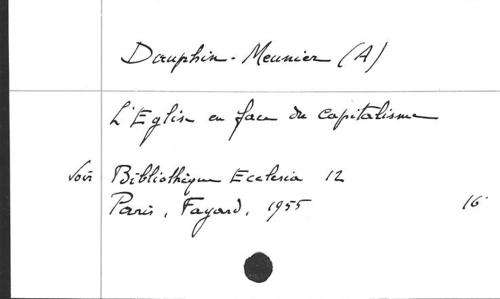 Dauphin-Meunier (A)
L'Eglise en face du capitalisme
Voir Bibliothèque Ecclesia 12
Paris, Fayard, 1955 16